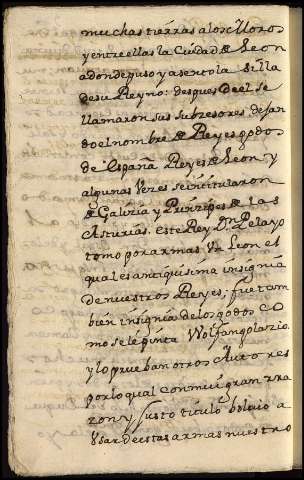 muchas tierras a los Moros
y entre ellas la Ciudad de Leon
a donde puso y asento la silla
de su Reyno: despues de el se
llamaron sus subcesores dejan
do el nombre de Reyes godos
de España Reyes de Leon, y
algunas Vezes se intitularon
de Galizia y Principes de Las
Asturias. Este Rey Dn Pelayo
tomo por armas Vn Leon el
qual es antiquisima insignia
de nuestros Reyes; fue tam
bien insignia de los godos co
mo se le pinta Wolfango lazio
y lo prueban otros Autores
por lo qual con mui gran rra
zon y justo titulo bolbio a
Vsar de estas armas nuestro